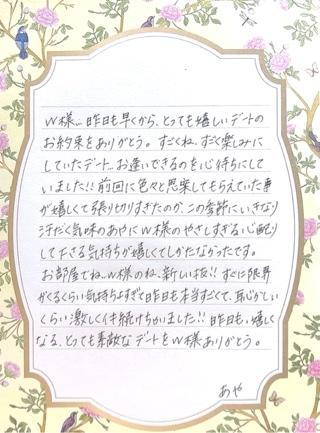 W様… 昨日も早くから、とっても嬉しいデートの
お約束をありがとう。すごくね、すごく楽しみに
していたデート…お逢いできるのを心待ちにして
いました!! 前回に色々と思案してもらえていた事
が嬉しくて張り切りすぎたのか、この季節にいきなり
汗だく気味のあやにW様のやさしすぎる心配り
して下さる気持ちが嬉しくてしかたなかったです。
お部屋でね…W様のね、新しい技!! すぐに限界
がくるくらい気持ちよすぎて昨日も本当すごくて、恥ずかしい
くらい激しくイキ続けちゃいました!! 昨日も、嬉しく
なる、とっても素敵なデートをW様ありがとう。
あや